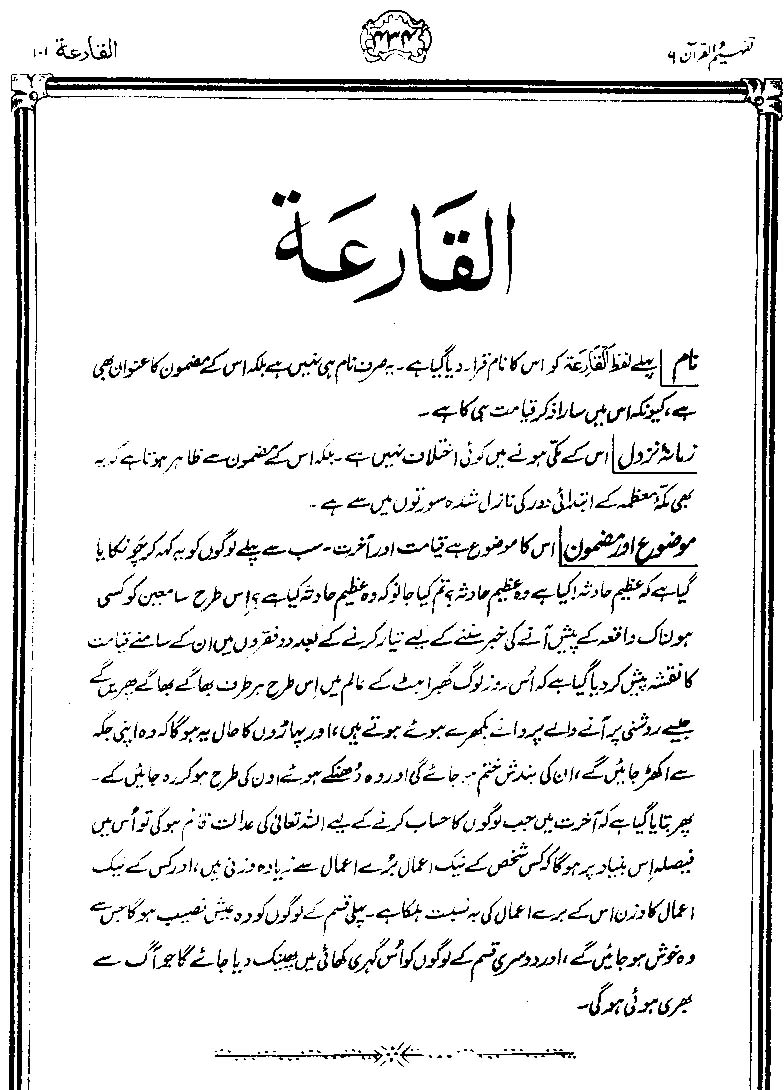 تفہیم القرآن ۶
۴۳۴
القارعة ۱۰۱
القَارِعَة
نام پہلے لفظ اَلْقَارِعَة کو اس کا نام قرار دیا گیا ہے۔ یہ صرف نام ہی نہیں ہے بلکہ اس کے مضمون کا عنوان بھی
ہے، کیونکہ اس میں سارا ذکر قیامت ہی کا ہے۔
زمانۂ نزول اس کے مکی ہونے میں کوئی اختلاف نہیں ہے۔ بلکہ اس کے مضمون سے ظاہر ہوتا ہے کہ یہ
بھی مکۂ معظمہ کے ابتدائی دور کی نازل شدہ سورتوں میں سے ہے۔
موضوع اور مضمون اس کا موضوع ہے قیامت اور آخرت۔ سب سے پہلے لوگوں کو یہ کہہ کر چونکایا
گیا ہے کہ عظیم حادثہ! کیا ہے وہ عظیم حادثہ؟ تم کیا جانو کہ وہ عظیم حادثہ کیا ہے؟ اِس طرح سامعین کو کسی
ہولناک واقعہ کے پیش آنے کی خبر سننے کے لیے تیار کرنے کے بعد دو فقروں میں ان کے سامنے قیامت
کا نقشہ پیش کر دیا گیا ہے کہ اُس روز لوگ گھبراہٹ کے عالم میں اِس طرح ہر طرف بھاگے بھاگے پھریں گے
جیسے روشنی پر آنے والے پروانے بکھرے ہوئے ہوتے ہیں، اور پہاڑوں کا حال یہ ہوگا کہ وہ اپنی جگہ
سے اکھڑ جائیں گے، ان کی بندش ختم ہو جائے گی اور وہ دُھنکے ہوئے اون کی طرح ہو کر رہ جائیں گے۔
پھر بتایا گیا ہے کہ آخرت میں جب لوگوں کا حساب کرنے کے لیے اللہ تعالیٰ کی عدالت قائم ہوگی تو اُس میں
فیصلہ اِس بنیاد پر ہوگا کہ کس شخص کے نیک اعمال بُرے اعمال سے زیادہ وزنی ہیں، اور کس کے نیک
اعمال کا وزن اس کے برے اعمال کی بہ نسبت ہلکا ہے۔ پہلی قسم کے لوگوں کو وہ عیش نصیب ہوگا جس سے
وہ خوش ہو جائیں گے، اور دوسری قسم کے لوگوں کو اُس گہری کھائی میں پھینک دیا جائے گا جو آگ سے
بھری ہوئی ہوگی۔